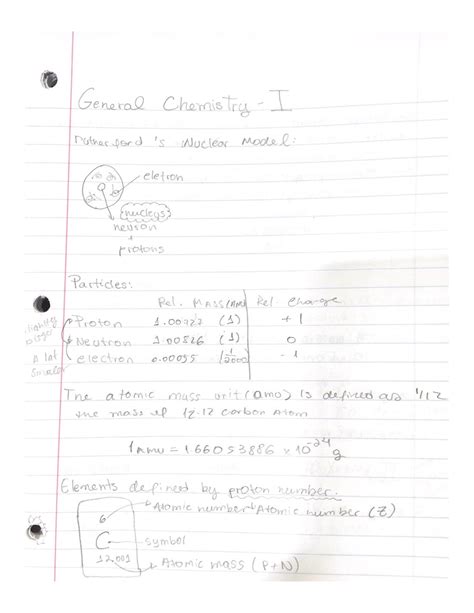 General Chemistry - I
Rutherford's Nuclear Model:
eletron
nucleus
neuson
+
protons
Particles:
Rel. Mass (AMU) Rel Charge
Proton 1.00727 (1) +1
Neutron 1.00526 (1) 0
electron 0.00055 (1/2000) -1
A lot
Smaller
The atomic mass unit (amo) is defined as 1/12
the mass of 12.12 Carbon Atom
1 Amu = 1.66053886 x 10^-24 g
Elements defined by proton number:
6 Atomic number Atomic number (Z)
C symbol
12.001 Atomic mass (P+N)